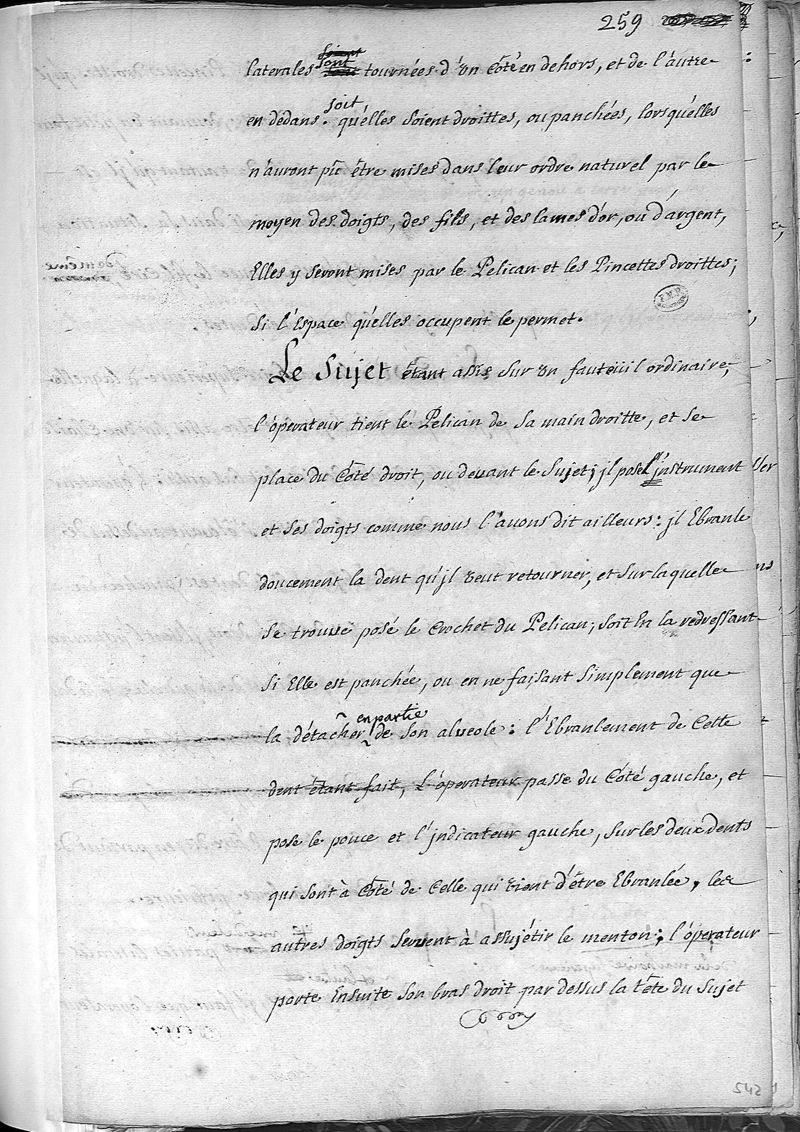 259
laterales sont tournées d'un Côté en dehors, et de l'autre
en dedans. soit qu'elles soient droittes, ou panchées, lorsqu'elles
n'auront pû être mises dans leur ordre naturel par le
moyen des doigts, des fils, et des lames d'or, ou d'argent,
Elles y seront mises par le Pelican et les Pincettes droittes;
si l'Espace qu'elles occupent le permet.
Le Sujet étant assis sur un fauteüil ordinaire,
l'operateur tient le Pelican de sa main droitte, et se
place du Côté droit, ou devant le sujet; jl pose l'instrument
et ses doigts comme nous l'avons dit ailleurs: jl Ebranle
doucement la dent qu'jl veut retourner, et sur laquelle
se trouve posé le Crochet du Pelican; soit En la redressant
si Elle est panchée, ou en ne faisant simplement que
la détacher en partie de son alveole: l'Ebranlement de Cette
dent étant fait, L'operateur passe du Côté gauche, et
pose le pouce et l'jndicateur gauche, sur les deux dents
qui sont à Côté de Celle qui vient d'être Ebranlée, les
autres doigts servent à assujétir le menton; l'operateur
porte Ensuite son bras droit par dessus la tête du sujet
542